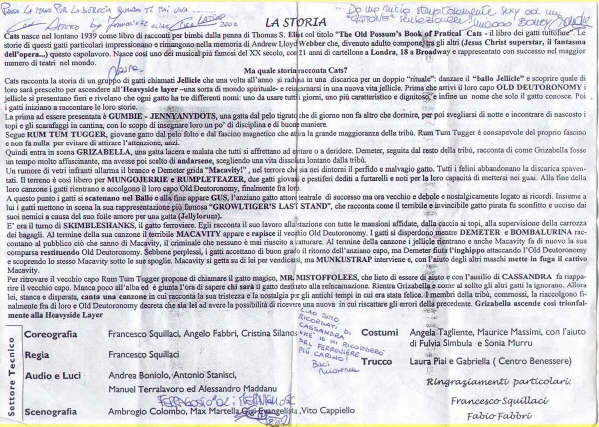 LA STORIA
Cats nasce nel lontano 1939 come libro di racconti per bimbi dalla penna di Thomas S. Eliot col titolo "The Old Possum's Book of Pratical Cats - il libro dei gatti tuttofare". Le
storie di questi gatti particolari impressionano e rimangono nella memoria di Andrew Lloyd Webber che, divenuto adulto compone tra gli altri (Jesus Christ superstar, il fantasma
dell'opera..) questo capolavoro. Nasce così uno dei musical più famosi del XX secolo, con 21 anni di cartellone a Londra, 18 a Broadway e rappresentato con successo nel maggior
numero di teatri nel mondo.
Ma quale storia racconta Cats?
Cats racconta la storia di un gruppo di gatti chiamati Jellicle che una volta all'anno si raduna in una discarica per un doppio "rituale": danzare il "ballo Jellicle" e scoprire quale di
loro sarà prescelto per ascendere all'Heavyside layer -una sorta di mondo spirituale- e reincarnarsi in una nuova vita jellicle. Prima che arrivi il loro capo OLD DEUTORONOMY i
jellicle si presentano fieri e rivelano che ogni gatto ha tre differenti nomi: uno da usare tutti i giorni, uno più caratteristico e dignitoso, e infine un nome che solo il gatto conosce. Poi
i gatti iniziano a raccontare le loro storie.
La prima ad essere presentata è GUMBIE - JENNYANYDOTS, una gatta dal pelo tigrato che di giorno non fa altro che dormire, per poi svegliarsi di notte e incantare di nascosto i
topi e gli scarafaggi in cantina, con lo scopo di insegnare loro un po' di disciplina e di buone maniere.
Segue RUM TUM TUGGER, giovane gatto dal pelo folto e dal fascino magnetico che attira la grande maggioranza della tribù. Rum Tum Tugger è consapevole del proprio fascino
e non fa nulla per evitare di attirare l'attenzione, anzi.
Quindi entra in scena GRIZABELLA, una gatta lacera e malata che tutti si affrettano ad evitare o a deridere. Demeter, seguita dal resto della tribù, racconta di come Grizabella fosse
un tempo molto affascinante, ma avesse poi scelto di andarsene, scegliendo una vita dissoluta lontano dalla tribù.
Un rumore di vetri infranti allarma il branco e Demeter grida "Macavity!", nel terrore che sia nei dintorni il perfido e malvagio gatto. Tutti i felini abbandonano la discarica spaventati. Il terreno è così libero per MUNGOJERRIE e RUMPLETEAZER, due gatti giovani e pestiferi dediti a furtarelli e noti per la loro capacità di mettersi nei guai. Alla fine della
loro canzone i gatti rientrano e accolgono il loro capo Old Deutoronomy, finalmente fra loro.
A questo punto i gatti si scatenano nel Ballo e alla fine appare GUS, l'anziano gatto attore teatrale di successo ma ora vecchio e debole e nostalgicamente legato ai ricordi. Insieme a
lui i gatti mettono in scena la sua rappresentazione più famosa "GROWLTIGER'S LAST STAND", che racconta come il terribile e invincibile gatto pirata fu sconfitto e ucciso dai
suoi nemici a causa del suo folle amore per una gatta (Jellylorum).
E' ora il turno di SKIMBLESHANKS, il gatto ferroviere. Egli racconta il suo lavoro alla stazione con tutte le mansioni affidate, dalla caccia ai topi, alla supervisione della carrozza
dei bagagli. Al termine della sua canzone il terribile MACAVITY appare e rapisce il vecchio Old Deutoronomy. I gatti si disperdono mentre DEMETER e BOMBALURINA raccontano al pubblico ciò che sanno di Macavity, il criminale che nessuno è mai riuscito a catturare. Al termine della canzone i jellicle rientrano e anche Macavity fa di nuovo la sua
comparsa restituendo Old Deutoronomy. Sebbene perplessi, i gatti accettano di buon grado il ritorno dell'anziano capo, ma Demeter fiuta l'inghippo attaccando l'Old Deutoronomy
e scoprendo Macavity sotto le sue spoglie. Macavity si getta su di lei per vendicarsi, ma MUNKUSTRAP interviene e, con l'aiuto degli altri maschi mette in fuga il cattivo
Macavity.
Per ritrovare il vecchio capo Rum Tum Tugger propone di chiamare il gatto magico, MR. MISTOFFOLEES, che lieto di essere di aiuto e con l'ausilio di CASSANDRA fa riapparire il vecchio capo. Manca poco all'alba ed è giunta l'ora di sapere chi sarà il gatto destinato alla reincarnazione. Rientra Grizabella e come al solito gli altri gatti la ignorano. Allora
lei, stanca e disperata, canta una canzone in cui racconta la sua tristezza e la nostalgia per gli antichi tempi in cui era stata felice. I membri della tribù, commossi, la riaccolgono finalmente fra di loro e Old Deutoronomy decreta che sia lei ad avere la possibilità di ricevere una nuova vita in cui riscattare gli errori della precedente. Grizabella ascende così trionfalmente alla Heavyside Layer
Settore Tecnico
Coreografia Francesco Squillaci, Angelo Fabbri, Cristina Silanos
Regia Francesco Squillaci
Audio e Luci Andrea Boniolo, Antonio Stanisci,
Manuel Terralavoro ed Alessandro Maddanu
Scenografia Ambrogio Colombo, Max Martella, Gigi Evangelista, Vito Cappiello
CIAO SONO
RICORDATI DI
CASSANDRA
CHE IO MI RICORDERÒ
DEL FERROVIERE
PIÙ CARINO!
BACI
Costumi Angela Tagliente, Maurice Massimi, con l'aiuto
di Fulvia Simbula e Sonia Murru
Trucco Laura Piai e Gabriella ( Centro Benessere)
Ringraziamenti particolari:
Francesco Squillaci
Fabio Fabbri